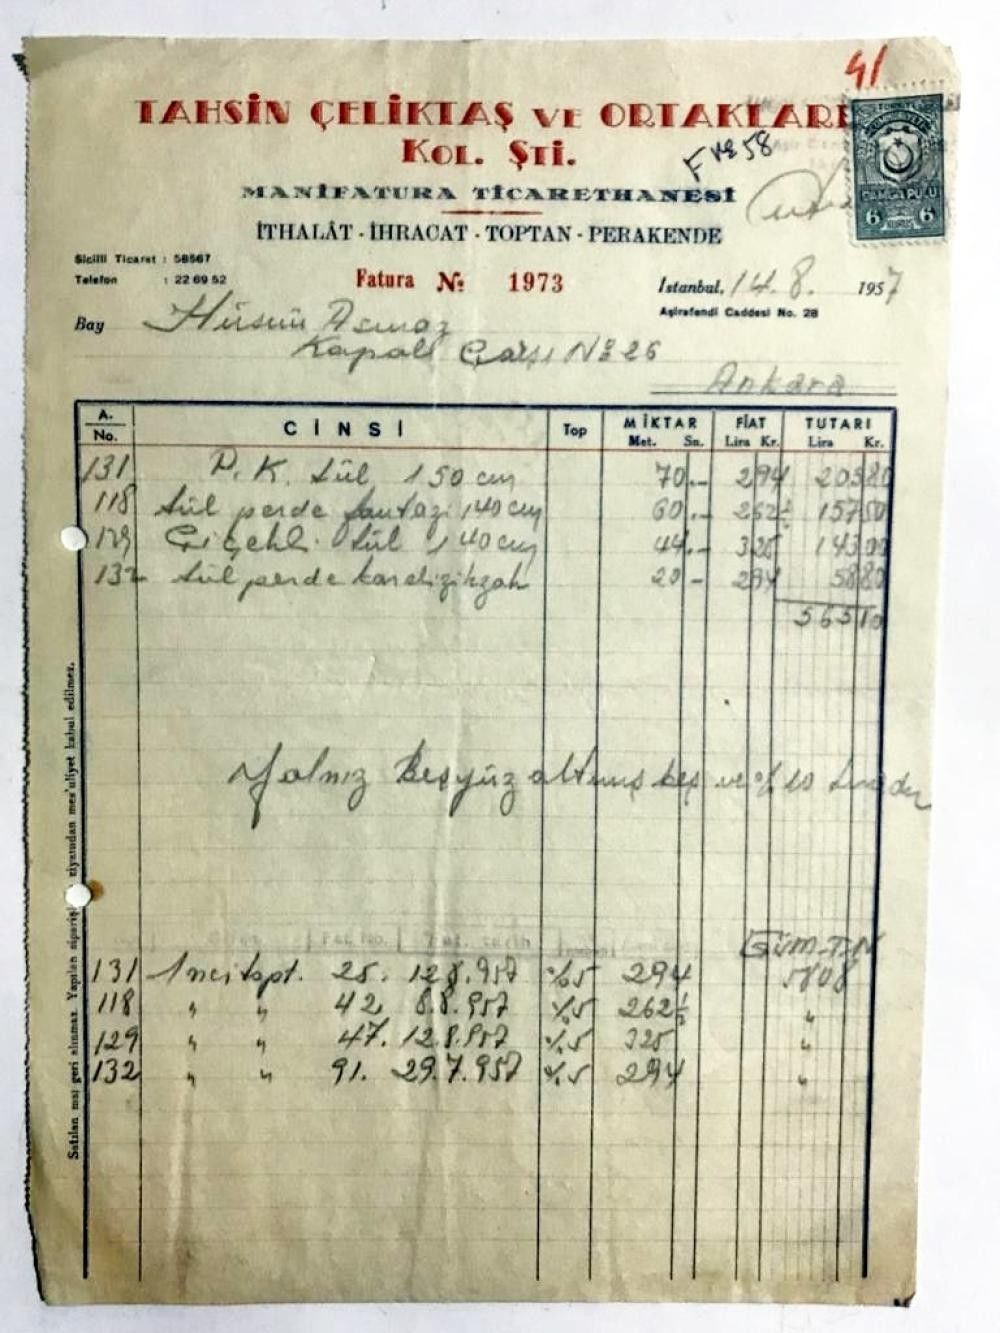 41
TAHSİN ÇELİKTAŞ VE ORTAKLARI
KOL. ŞTİ.
MANİFATURA TİCARETHANESİ
İTHALÂT - İHRACAT - TOPTAN - PERAKENDE
TÜRKİYE
CUMHURİYETİ
DAMGA PULU
6 KURUŞ 6
Sicilli Ticaret : 58567
Telefon : 22 69 52
Fatura № 1973
Istanbul, 14.8. 1957
Aşirefendi Caddesi No. 28
Bay Hüsnü
Kapalı Çarşı No 26
Ankara
A. No. CİNSİ Top MİKTAR Met. Sn. FİAT Lira Kr. TUTARI Lira Kr.
131 P.K. tül 150 cm 70 .- 2 94 205 80
118 tül perde fantazi 140 cm 60 .- 2 62 ½ 157 50
129 Çiçekli tül 140 cm 44 .- 3 25 143 00
132 tül perde 20 - 2 94 58 80
565 10
Yalnız Beşyüz altmış beş ve % 10 liradır
GÜM. T. N
131 25. 12.8.957 %5 294 5808
118 " " 42 8.8.957 %5 262 ½ "
129 " " 47. 12.8.957 %5 325 "
132 " " 91. 29.7.957 %5 294 "
Satılan mal geri alınmaz. Yapılan sipariş ziyaından mes'uliyet kabul edilmez.